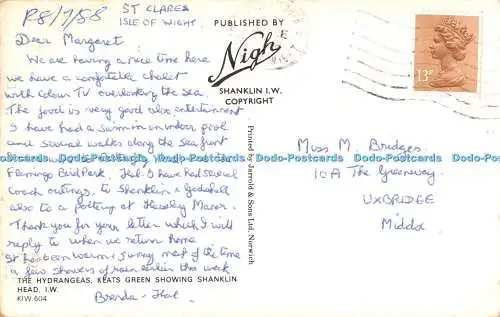 R8/7/88
ST CLARES
ISLE OF WIGHT.
Dear Margaret,
We are having a nice time here
we have a comfortable chalet
with colour TV overlooking the sea.
The food is very good also entertainment
I have had a swim in an indoor pool
and several walks along the sea front
Flamingo Bird Park, Hal & I have had several
coach outings, to Shanklin & Godshill
also to a pottery at Haseley Manor.
Thank you for your letter which I will
reply to when we return home
It has been warm & sunny most of the time
a few showers of rain earlier this week
Brenda & Hal
PUBLISHED BY
Nigh
SHANKLIN I.W.
COPYRIGHT
Printed by Jarrold & Sons Ltd, Norwich
THE HYDRANGEAS, KEATS GREEN SHOWING SHANKLIN
HEAD, I.W.
KIW 604
13P
Miss M. Bridges
10A The Greenway
UXBRIDGE
Middx
Dodo-Postcards Dodo-Postcards Dodo-Postcards Dodo-Postcards Dodo-Postcards Dodo-Postcards